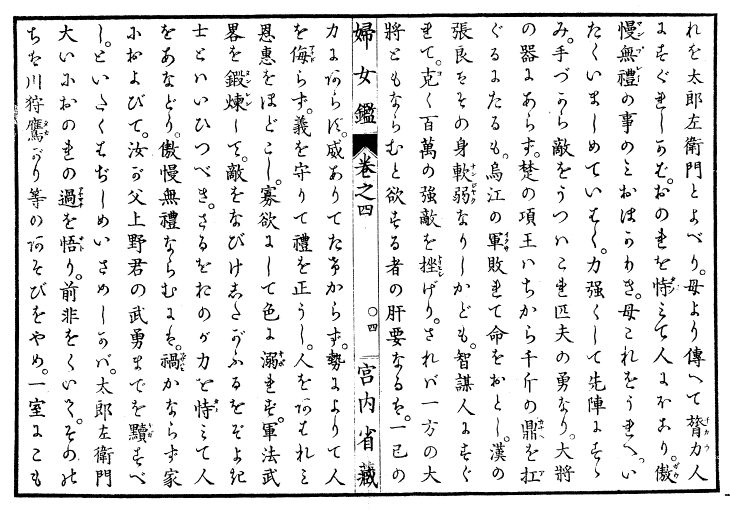 れを太郎左衞門とよべり。母より傳へて膂力人
にすぐれしかば。おのれを恃みて人にほこり。傲
慢無禮の事のみおほかりき。母これをうれへ。い
たくいましめていはく。力強くして先陣にすゝ
み。手づから敵をうつハこれ匹夫の勇なり。大將
の器にあらず。楚の項王ハちから千斤の鼎を扛
ぐるにたるも。烏江の軍敗れて命をおとし。漢の
張良ハその身軟弱なりしかども。智謀人にすぐ
れて。克く百萬の強敵を挫げり。されバ一方の大
將ともならむと欲する者の肝要なるを。一己の
婦女鑑 卷之四 〇四 宮内省藏
力にあらず。威ありてたけからず。勢によりて人
を侮らず。義を守りて禮を正うし。人をあはれミ
恩惠をほどこし。寡欲にして色に溺れず。軍法武
畧を鍛煉して。敵をなびけしたがふるをぞよき
士とハいひつべき。さるをおのが力を恃ミて人
をあなどり。傲慢無禮ならむにハ。禍かならず家
におよびて。汝が父上野君の武勇までを黷すべ
し。といたくはぢしめいさめしかバ。太郎左衞門
大いにおのれの過を悟り。前非をくいて。そのの
ちハ川狩鷹がり等のあそびをやめ。一室にこも